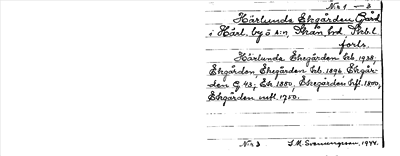 No 1 — 3
Härlunda Ekegården Gård
i Härl. by o s:n, Skån. hd. Skb. l.
forts.
Härlunda Ekegården Eb. 1938,
Ekegården, Ekegården Eb. 1896 Ekegår-
den G 43, Ek 1880, Ekegården hfl. 1800,
Ekegården 1750.
No 3 S.M. Svenungsson, 1944.